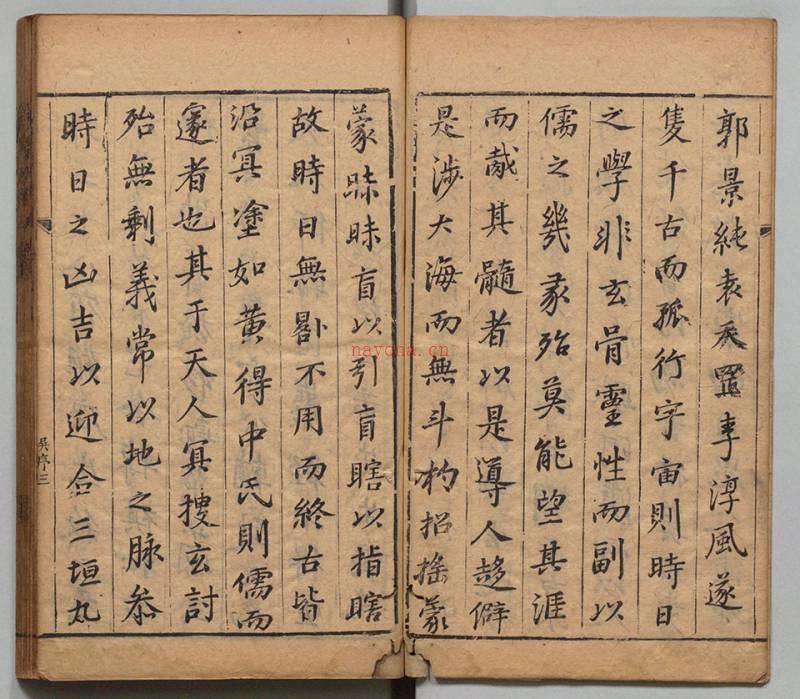 郭景純袁天罡李淳風遂
隻千古而孤行宇宙則時日
之學非玄骨靈性而副以
儒之幾彖殆莫能望其涯
而胾其髓者以是導人趍僻
是涉大海而無斗杓招搖蒙
蒙眛眛盲以引盲瞎以指瞎
故時日無晷不用而終古皆
沿冥塗如黄得中氏則儒而
邃者也其于天人冥搜玄討
殆無剩義常以地之脉叅
時日之凶吉以迎合三垣丸
吳序三
nayona.cn